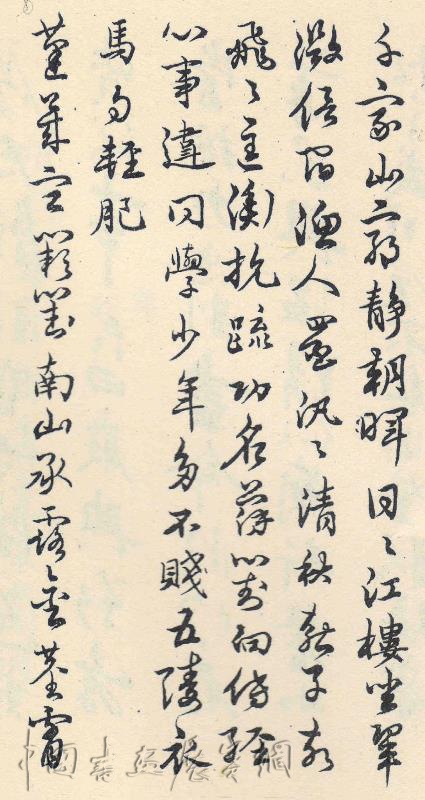 千家山郭靜朝暉日々江樓坐翠
微信宿漁人還汎々清秋燕子故
飛々匡衡抗疏功名薄劉向傳經
心事違同學少年多不賤五陵衣
馬自輕肥
蓬萊宮闕對南山承露金莖霄